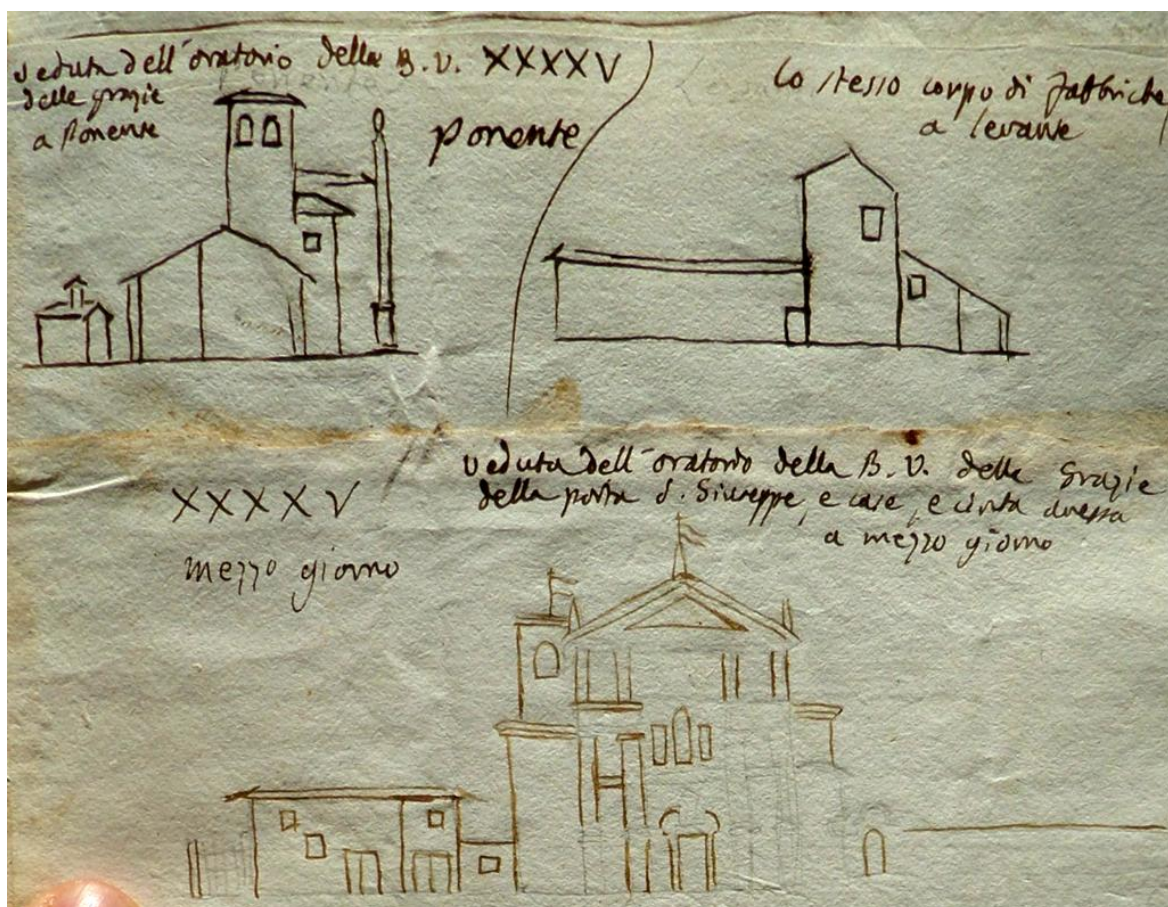 veduta dell'oratorio della B. V. XXXXV
delle grazie
a Ponente
ponente
Lo stesso corpo di fabbriche
a levante
XXXXV
mezzo giorno
veduta dell'oratorio della B. V. delle Grazie
della porta S. Giuseppe, e case, e cinta annessa
a mezzo giorno